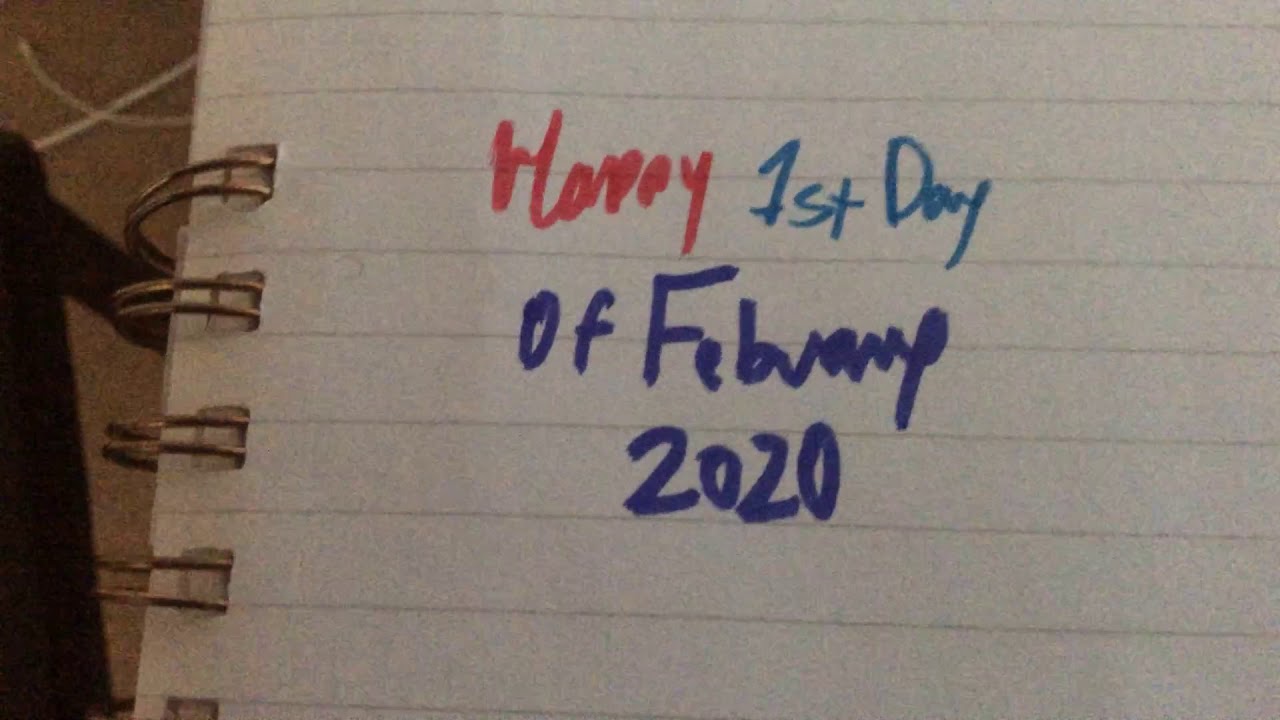 Happy 1st Day
Of February
2020